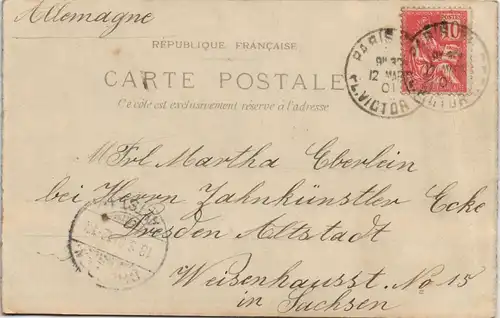 Allemagne
RÉPUBLIQUE FRANÇAISE
CARTE POSTALE
Ce côté est exclusivement réservé à l'adresse
PARIS
12 MARS
01
PL. VICTOR
10
Frl Martha Eberlein
bei Herrn Zahnkünstler Ecke
Dresden Altstadt
Weisenhausst. No 15
in Sachsen